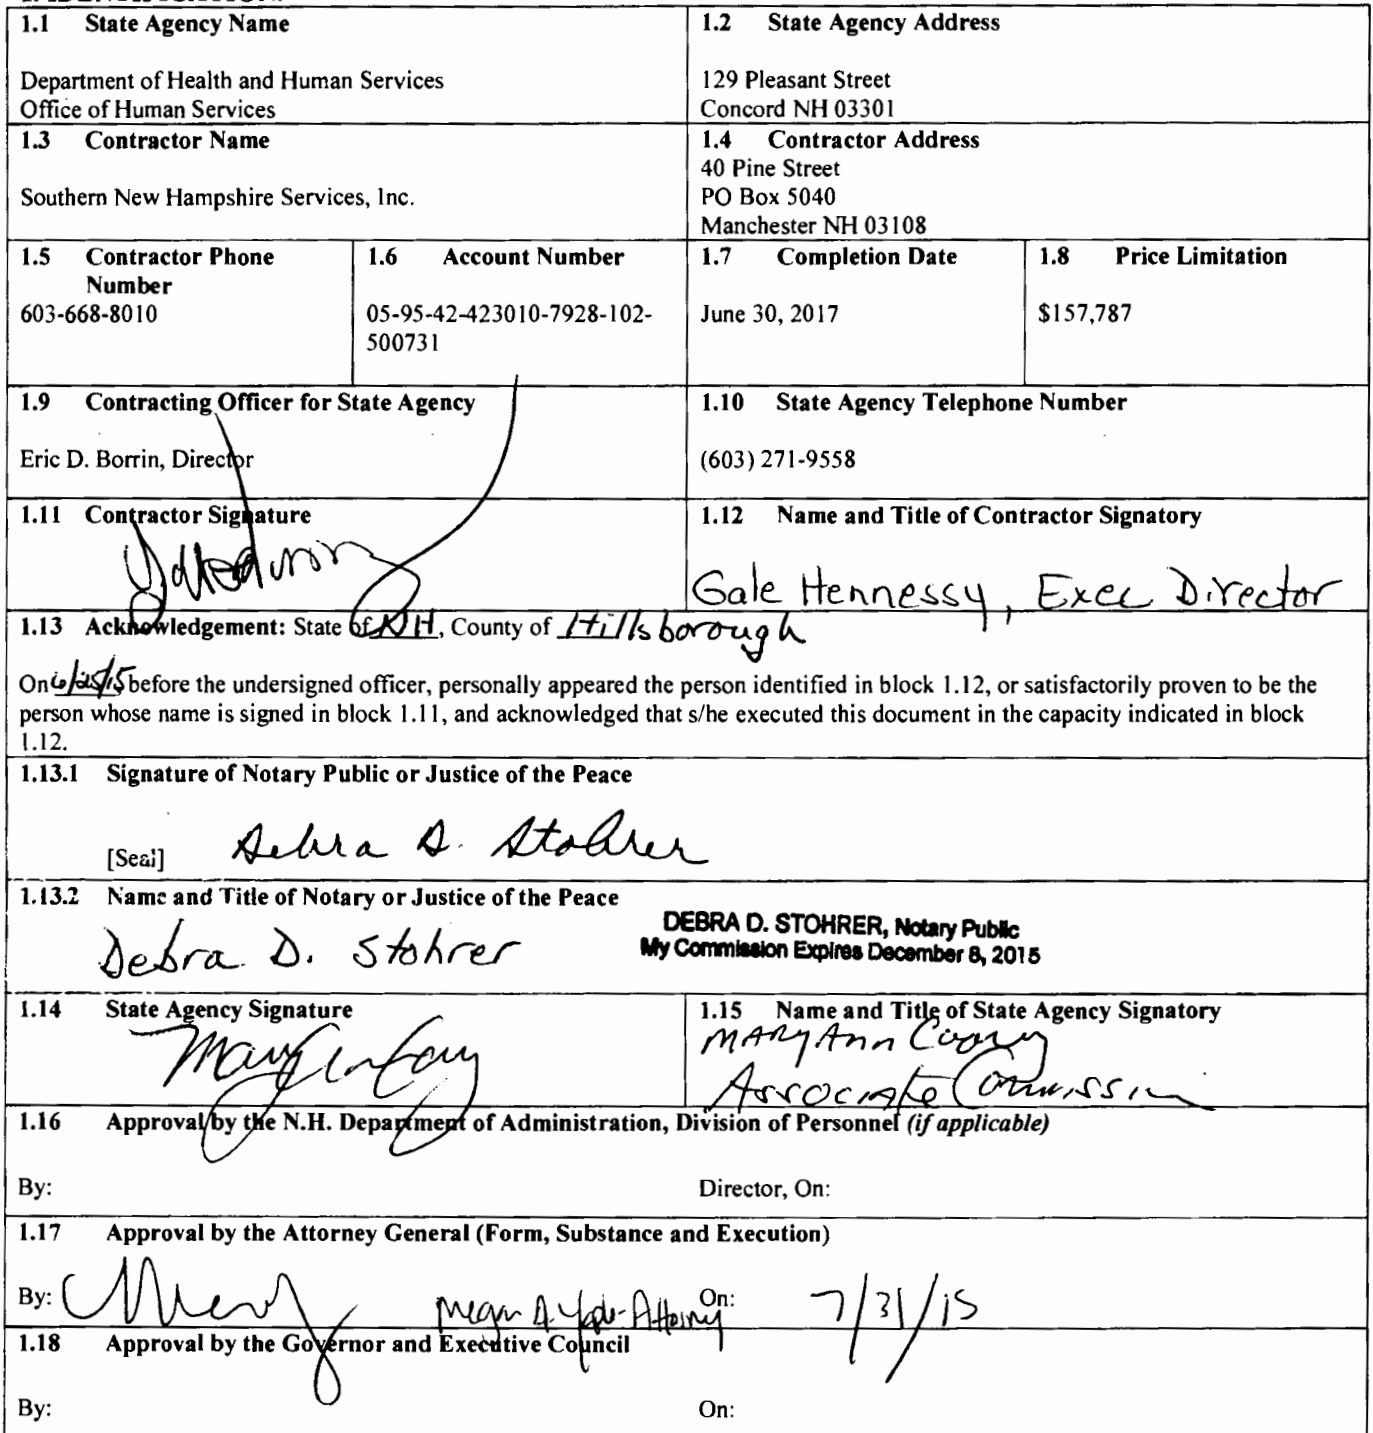 1.1 State Agency Name
Department of Health and Human Services
Office of Human Services
1.2 State Agency Address
129 Pleasant Street
Concord NH 03301
1.3 Contractor Name
Southern New Hampshire Services, Inc.
1.4 Contractor Address
40 Pine Street
PO Box 5040
Manchester NH 03108
1.5 Contractor Phone
Number
603-668-8010
1.6 Account Number
05-95-42-423010-7928-102-
500731
1.7 Completion Date
June 30, 2017
1.8 Price Limitation
$157,787
1.9 Contracting Officer for State Agency
Eric D. Borrin, Director
1.10 State Agency Telephone Number
(603) 271-9558
1.11 Contractor Signature
1.12 Name and Title of Contractor Signatory
Gale Hennessy, Exec Director
1.13 Acknowledgement: State of NH, County of Hillsborough
On 6/25/15 before the undersigned officer, personally appeared the person identified in block 1.12, or satisfactorily proven to be the
person whose name is signed in block 1.11, and acknowledged that s/he executed this document in the capacity indicated in block
1.12.
1.13.1 Signature of Notary Public or Justice of the Peace
[Seal] Debra D. Stohrer
1.13.2 Name and Title of Notary or Justice of the Peace
Debra D. Stohrer
DEBRA D. STOHRER, Notary Public
My Commission Expires December 8, 2015
1.14 State Agency Signature
1.15 Name and Title of State Agency Signatory
Mary Ann Cooney
Associate Commissin
1.16 Approval by the N.H. Department of Administration, Division of Personnel (if applicable)
By: Director, On:
1.17 Approval by the Attorney General (Form, Substance and Execution)
By: Megan A. - Attorney On: 7/31/15
1.18 Approval by the Governor and Executive Council
By: On: